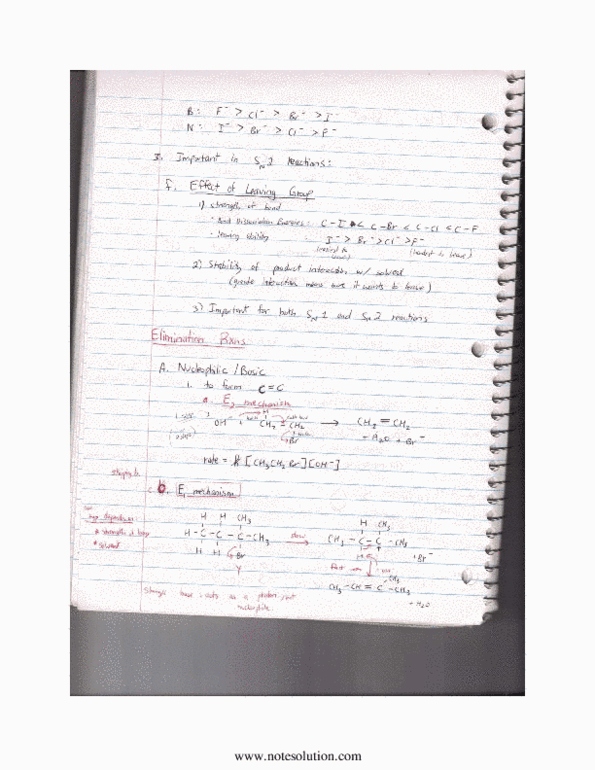 B: F⁻ > Cl⁻ > Br⁻ > I⁻
N: I⁻ > Br⁻ > Cl⁻ > F⁻
3. Important in SN2 reactions:
f. Effect of Leaving Group
1) strength of bond
· Bond Dissociation Energies: C-I < C-Br < C-Cl < C-F
· leaving ability : I⁻ > Br⁻ > Cl⁻ > F⁻
(easiest to leave) (hardest to leave)
2) Stability of product interaction w/ solvent
(greater interaction more it wants to leave)
3) Important for both SN1 and SN2 reactions
Elimination Rxns
A. Nucleophilic / Basic
1. to form C=C
a. E2 mechanism
1 step
OH⁻ CH2 - CH2 → CH2 = CH2
Br + H2O + Br⁻
rate = k [CH3CH2Br][OH⁻]
b. E1 mechanism
strength of base
solvent
H H CH3
H-C-C-C-CH3 slow
H H Br
H CH3
CH3-C-C-CH3
H + Br⁻
fast OH
CH3-CH=C-CH3
CH3
+ H2O
Strong base : acts as a proton not nucleophile
www.notesolution.com